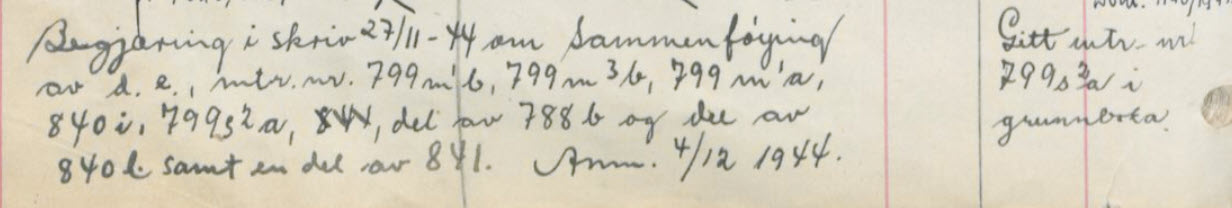 Begjæring i skriv 27/11-44 om Sammenføying
av d. e., mtr. nr. 799 m¹b, 799 m³b, 799 m¹a,
840 i, 799 s²a, 841, del av 788 b og del av
840 b samt en del av 841. Anm. 4/12 1944.
Gitt mtr. nr.
799 s²a i
grunnboka.